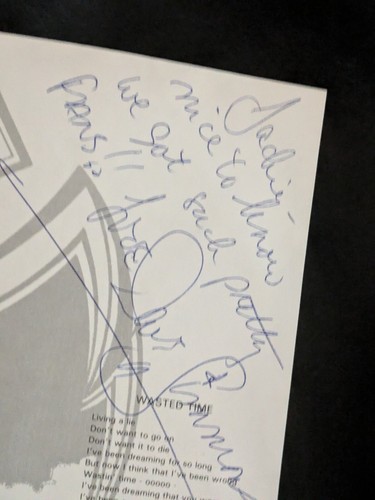 Jackie-
nice to know
we got such pretty
fans!!
Love,
WASTED TIME
Living a lie
Don't want to go on
Don't want it to die
I've been dreaming for so long
But now I think that I've been wrong
Wastin' time - ooooo -
I've been dreaming that you
I've been